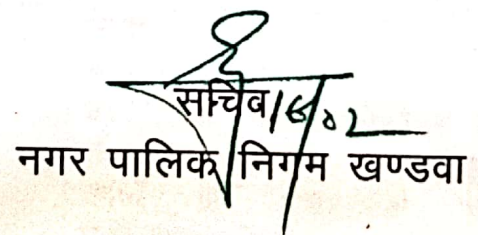 सचिव
नगर पालिक निगम खण्डवा